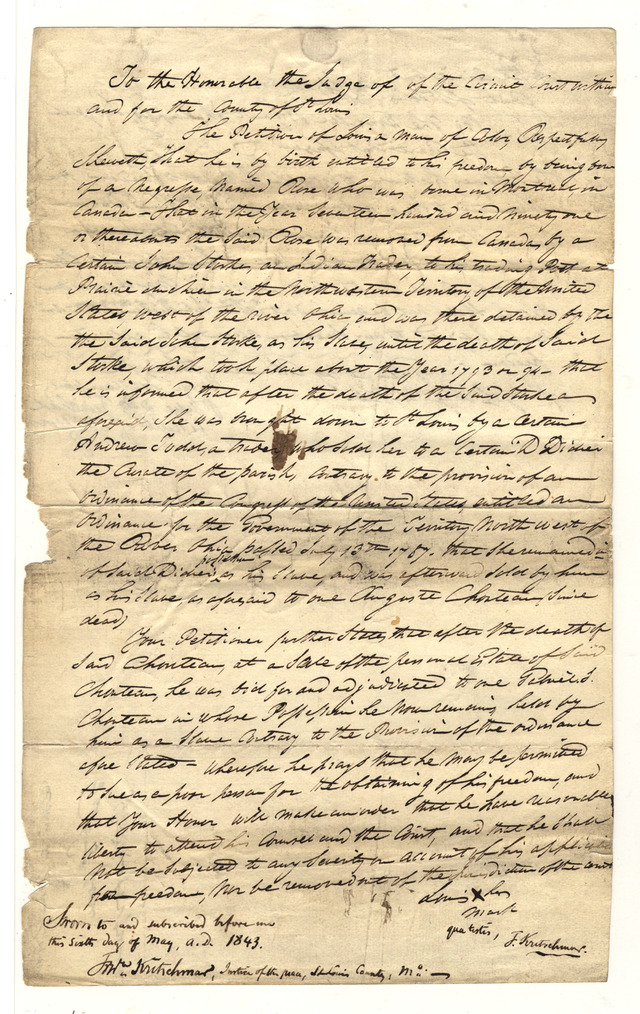 To the Honorable the Judge of of the Circuit Court within
and for the County of St Louis
The Petition of Louis a man of Color Respectfully
Sheweth That he is by birth entitled to his freedom by being born
of a Negresse, named Rose who was borne in Montreal, in
Canada – That in the Year Seventeen hundred and Ninety one
or thereabouts the Said Rose was removed from Canada, by a
Certain John Stoke, an Indian Trader to his trading Post at
Prairie du Chien in the Northwestern Territory of the United
States, west of the river Ohio and was there detained by the
the Said John Stoke, as his Slave, until the death of Said
Stoke, which took place about the Year 1793 or 94 – that
he is informed that after the death of the Said Stoke as
aforesaid, She was brought down to St Louis by a Certain
Andrew Todd, a trader, who Sold her to a Certain D Didier
the Curate of the parish, Contrary to the provision of an
Ordinance of the Congress of the United States, entitled an
Ordinance for the Government of the Territory North West of
the River Ohio, passed July 13th 1787. that She remained in
possession
of Said Didier, as his Slave, and was afterward Sold by him
as his Slave, as aforesaid to one Auguste Chouteau, Since
dead,
Your Petitioner further States, that after the death of
Said Chouteau, at a Sale of the personal Estate of Said
Chouteau, he was bid for and adjudicated to one Gabriel S.
Chouteau in whose Possession he Now remains, held by
him as a Slave Contrary to the Provision of the ordinance
afore Stated – wherefore he prays that he may be permitted
to Sue as a poor person for the obtaining of his freedom, and
that Your Honor will make an order that he have reasonable
liberty to attend his Counsel and the Court, and that he Shall
Not be Subjected to any Severity on account of his application
for freedom, Nor be removed out of the jurisdiction of the court
Louis X his
mark
qua testis,
F. Kretschmar.
Sworn to and subscribed before me
this Sixth day of May, A.D. 1843.
Kretschmar, Justice of the peace, St Louis County, Mo.